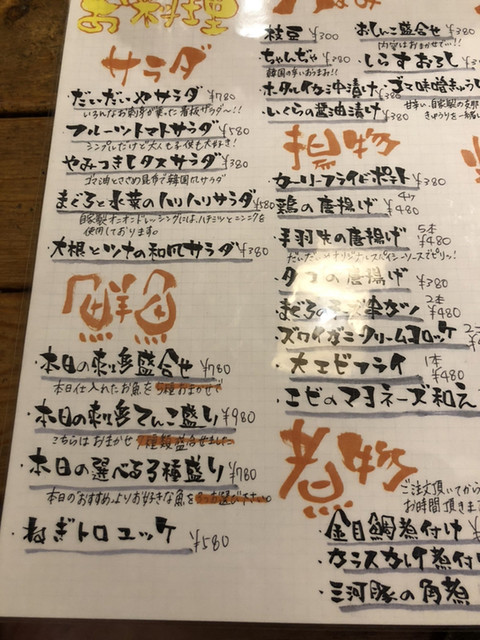 お料理
サラダ
・だいだいやサラダ ¥780
・フルーツトマトサラダ ¥580
シンプルだけど大人も子供も大好き!
・やみつきレタスサラダ ¥380
ゴマ油ときざみ昆布で韓国風サラダ
・まぐろと水菜のハリハリサラダ ¥580
自家製オニオンドレッシングには、ハチミツとニンニクを
使用しております。
・大根とツナの和風サラダ ¥380
鮮魚
・本日の刺身盛合せ ¥780
本日仕入れたお魚を
・本日の刺身てんこ盛り ¥980
こちらはおまかせ7種類盛合せました
・本日の選べる3種盛り ¥780
本日のおすすめよりお好きな魚を3つお選び下さい。
・ねぎトロユッケ ¥580
枝豆 ¥300
・ちゃんぢゃ ¥380
韓国の辛いおつまみ!!
・ホタルイカ沖漬け
・いくらの醤油漬け
・おしんこ盛合せ ¥380
内容はおまかせで…!!
・しらすおろし
・ゴマ味噌きゅうり
揚物
・カーリーフライドポテト ¥380
・鶏の唐揚げ 4ヶ ¥480
・手羽先の唐揚げ 5本 ¥480
・タコの唐揚げ ¥380
・まぐろの 2本 ¥480
・ズワイガニクリームコロッケ
・大エビフライ 1本 ¥480
・エビのマヨネーズ和え
煮物
ご注文頂いてから
お時間頂きま
・金目鯛煮付け
・カラスカレイ煮付け
・三河豚の角煮